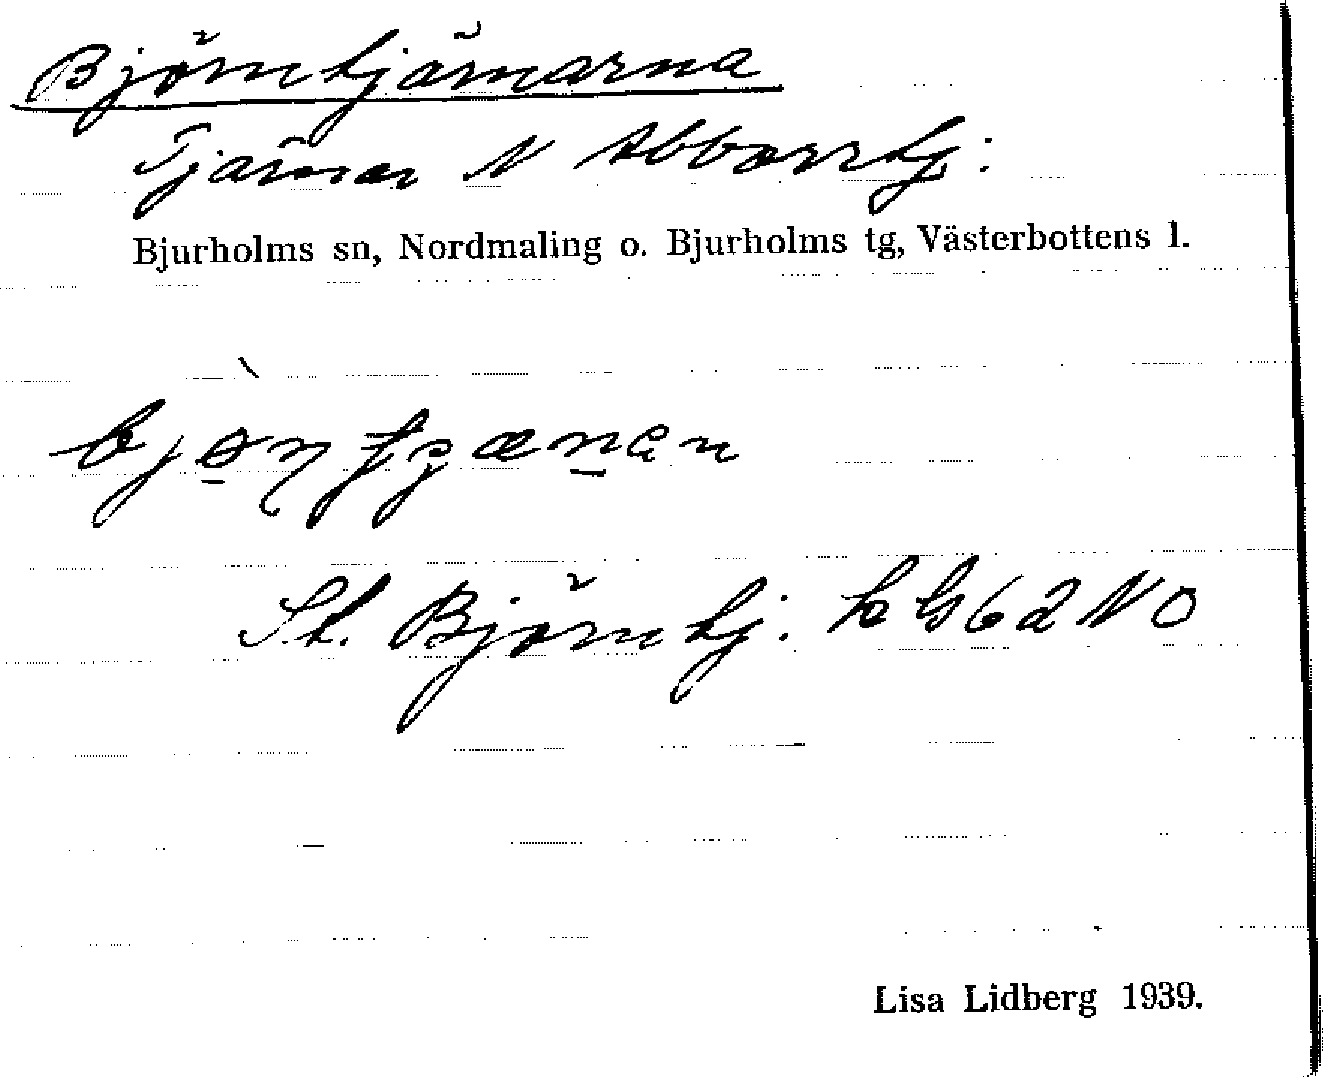 Björntjärnarna
Tjärnar N Abborrtj:
Bjurholms sn, Nordmaling o. Bjurholms tg, Västerbottens l.
St. Björntj: LG62NO
Lisa Lidberg 1939.